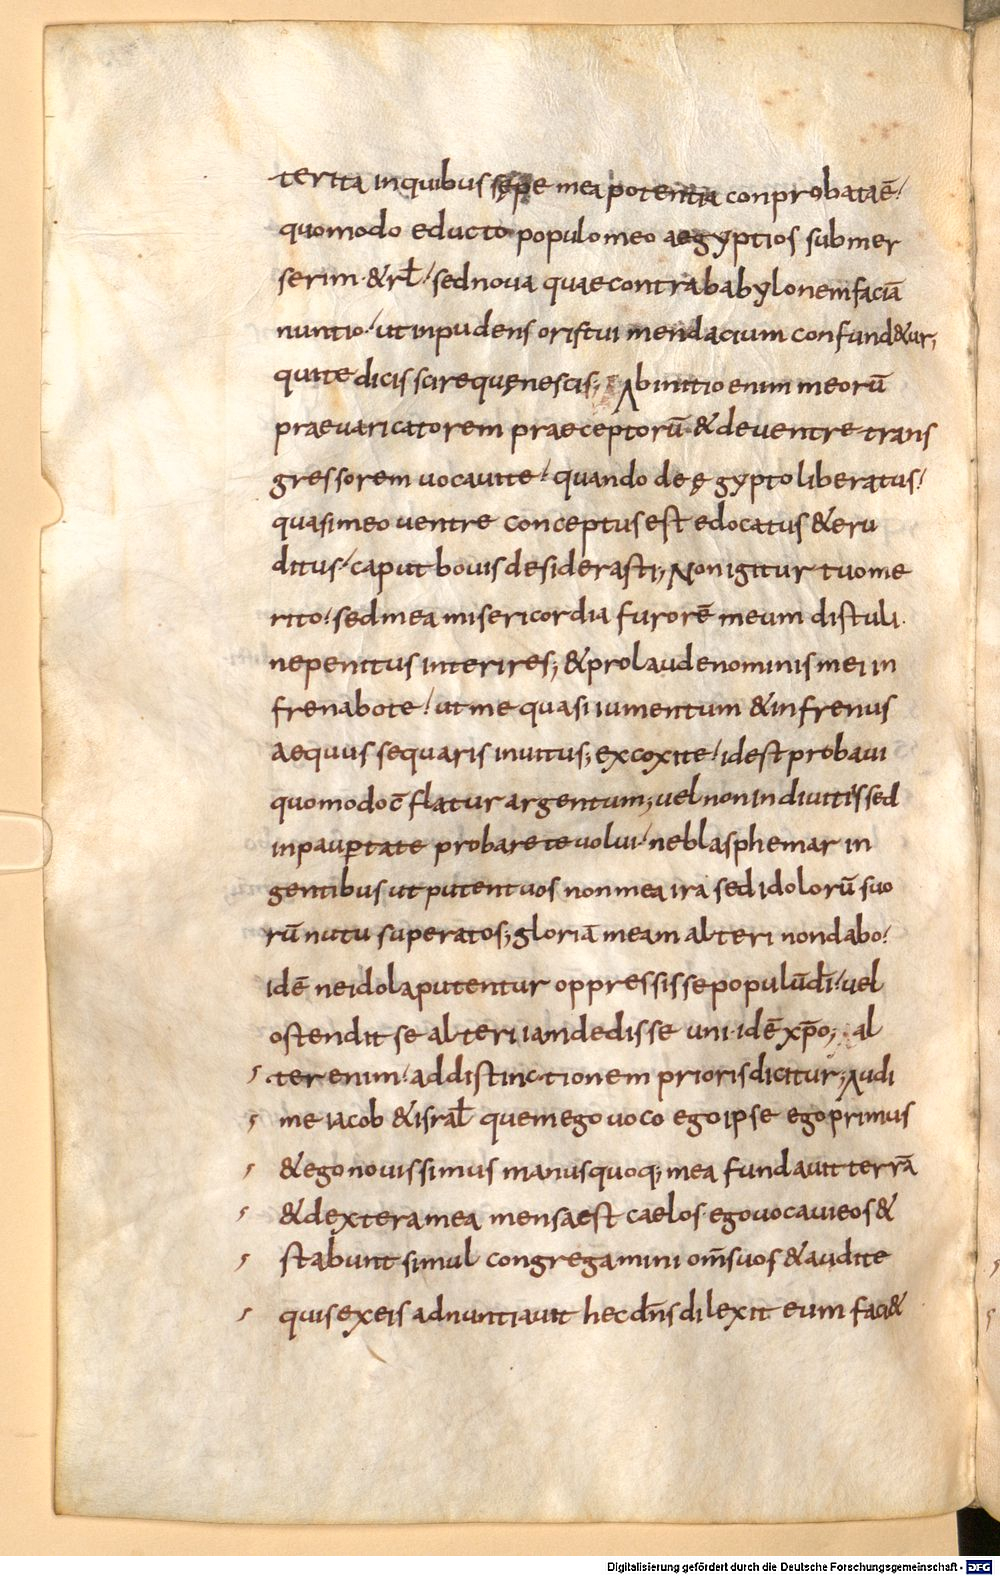 terita inquibus sępe mea potentia conprobata ē /
quomodo educto populo meo aegyptios submer
serim · & rł / sed nova quae contra babylonem faciā
nuntio · / ut inpudens oris tui mendacium confund&ur ;
qui te dicis scire quę nescis ; Ab initio enim meorū
praevaricatorem praeceptorū · & de ventre trans
gressorem vocavi te / quando de ęgypto liberatus /
quasi meo ventre conceptus est edocatus & eru
ditus / caput bovis desiderasti ; Non igitur tuo me
rito / sed mea misericordia furorē meum distuli ·
ne penitus interires ; & pro laude nominis mei in
frenabo te / ut me quasi iumentum & infrenus
aequus sequaris invitus ; excoxi te / id est probavi
quomodo cōflatur argentum ; vel non in divitiis sed
in paup̄tate probare te volui / ne blasphemar in
gentibus ut putent vos non mea ira sed idolorū suo
rū nutu superatos ; gloriā meam alteri non dabo /
id ē ne idola putentur oppressisse populū dī / vel
ostendit se alteri iam dedisse uni · id ē xp̄o ; al
ter enim / ad distinctionem prioris dicitur ; Audi
me iacob & israł quem ego voco ego ipse ego primus
& ego novissimus manus quoq; mea fundavit terrā
& dextera mea mensa est caelos · ego vocavi eos &
stabunt simul congregamini om̄s vos & audite
quis ex eis adnuntiavit hec dn̄s dilexit eum faci&
Digitalisierung gefördert durch die Deutsche Forschungsgemeinschaft - DFG